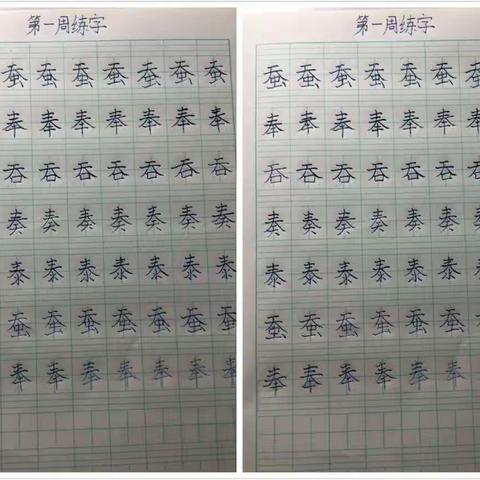 第一周练字
蚕蚕蚕蚕蚕蚕蚕
奉奉奉奉奉奉奉
吞吞吞吞吞吞吞
奏奏奏奏奏奏奏
泰泰泰泰泰泰泰
蚕蚕蚕蚕蚕蚕蚕
奉奉奉奉奉奉奉
第一周练字
蚕蚕蚕蚕蚕蚕蚕
奉奉奉奉奉奉奉
吞吞吞吞吞吞吞
奏奏奏奏奏奏奏
泰泰泰泰泰泰泰
蚕蚕蚕蚕蚕蚕蚕
奉奉奉奉奉奉